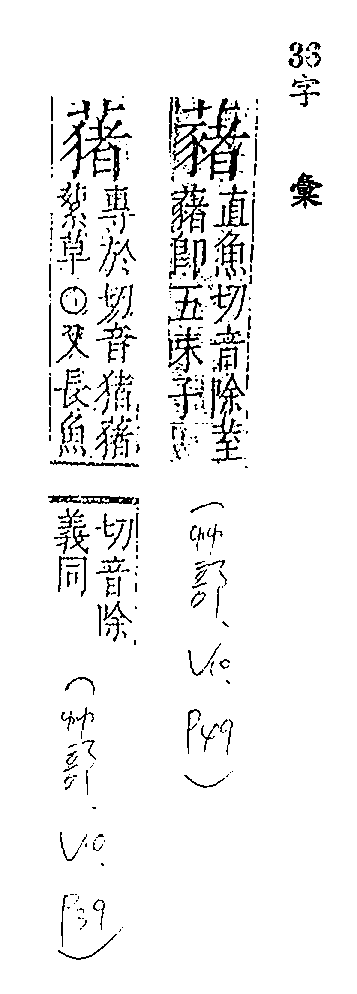 36字彙
藸
直魚切音除荎
藸即五味子
(艸部. V10. P49)
蕏
專於切音猪蕏
草○又長魚
切音除
義同
(艸部. V10. P39)